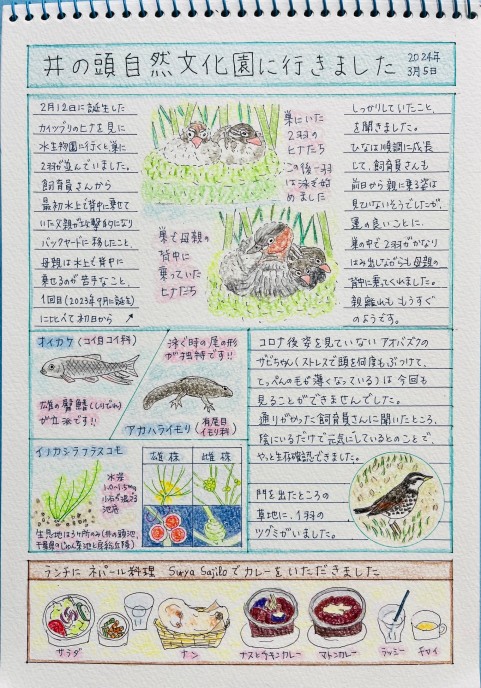 井の頭自然文化園に行きました
2024年
3月5日
2月12日に誕生した
カイツブリのヒナを見に
水生物園に行くと、巣に
2羽が並んでいました。
飼育員さんから
最初水上で背中に乗せて
いた父親が攻撃的になり
バックヤードに移したこと、
母親は水上で背中に
乗せるのが苦手なこと、
1回目(2023年9月に誕生)
に比べて初日から
巣にいた
2羽の
ヒナたち
この後一羽
は泳ぎ始
めました
巣で母親の
背中に
乗っていた
ヒナたち
しっかりしていたこと、
を聞きました。
ひなは順調に成長
して、飼育員さんも
前日から親に乗る姿は
見ていないそうでしたが、
運の良いことに、
巣の中で2羽がかなり
はみ出しながらも母親の
背中に乗ってくれました。
親離れももうすぐ
のようです。
オイカワ(コイ目コイ科)
雄の臀鰭(しりびれ)
が立派です!!
泳ぐ時の尾の形
が独特です!!
アカハライモリ(有尾目
イモリ科)
コロナ後姿を見ていないアオバズクの
サビちゃん(ストレスで頭を何度もぶつけて、
てっぺんの毛が薄くなっている)は今回も
見ることができませんでした。
通りがかった飼育員さんに聞いたところ、
陰にいるだけで元気にしているとのことで、
やっと生存確認できました。
門を出たところの
草地に、1羽の
ツグミがいました。
イノカシラフラスコモ
水深
雄株
雌株
池底
生息地は3ヶ所のみ(井の頭池、
ランチに ネパール料理 Surya Sajiloでカレーをいただきました
サラダ
ナン
ナスとチキンカレー
マトンカレー
ラッシー
チャイ